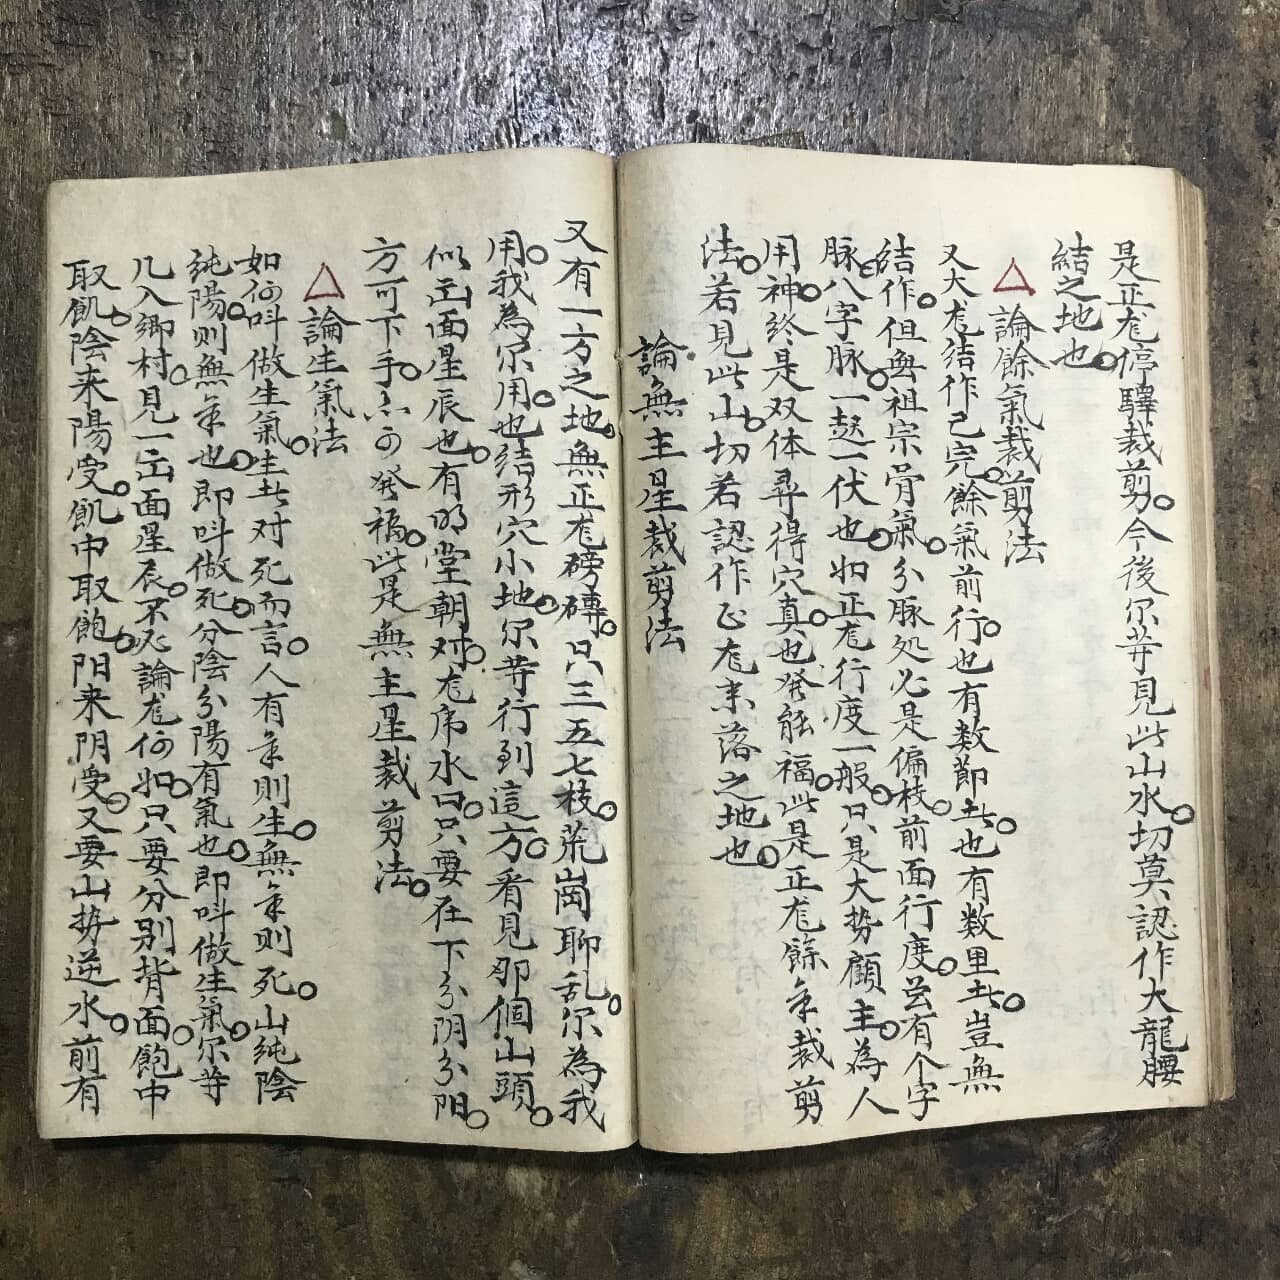 是正龙停驛裁剪。今後尔等見此山水。切莫認作大龍腰
結之地也。
論餘氣裁剪法
又大龙結作已完。餘氣前行。也有数節者。也有数里者。豈無
結作。但與祖宗骨氣。分脉处必是偏枝。前面行度。並有个字
脉。八字脉。一起一伏也。如正龙行度一般。只是大势顧主。為人
用神。終是双体尋得穴真。也發能福。此是正龙餘氣裁剪
法。若見此山。切若認作正龙末落之地也。
論無主星裁剪法
又有一方之地。無正龙磅礡。只三五七枝。荒崗聊乱。尔為我
用。我為尔用。也結形穴小地。尔等行到這方。看見那個山頭。
似出面星辰也。有明堂朝对。龙虎水口。只要在下分阴分阳。
方可下手。亦可發福。此是無主星裁剪法。
論生氣法
如何呌做生氣。生者对死而言。人有气則生。無气則死。山純陰
純陽。則無气也。即呌做死。分陰分陽有氣也。即呌做生氣。尔等
凡入鄉村。見一出面星辰。不必論龙何如。只要分别背面。飽中
取飢。陰来陽受。飢中取飽。阳来阴受。又要山势逆水。前有